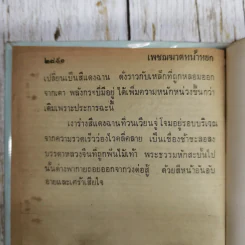 ๒๘๔๑
เพชฌฆาตหน้าหยก
เปลี่ยนเป็นสีแดงฉาน ดังราวกับเหล็กที่ถูกหลอมออก
จากเตา พลังกระบี่มีอยู่ ได้เพิ่มความหนักหน่วงขึ้นกว่า
เดิมเพราะประการฉะนี้
เงาร่างสีแดงฉานที่วนเวียนจู่โจมอยู่รอบบริเวณ
จากความรวดเร็วว่องไวคลี่คลาย เป็นเชื่องช้าชะลอลง
บรรดาหลวงจีนที่ถูกพันไม้เท้า พระธรรมหักสะบั้นไป
นั้นต่างพากายถอยออกจากวงต่อสู้ ด้วยสีหน้าอันอับ
อายและเศร้าเสียใจ